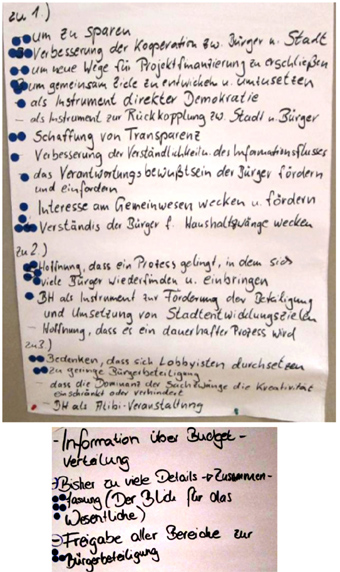 zu 1.)
um zu sparen
Verbesserung der Kooperation zw. Bürger u. Stadt
um neue Wege für Projektfinanzierung zu erschließen
um gemeinsam Ziele zu entwickeln u. umzusetzen
- als Instrument direkter Demokratie
- als Instrument zur Rückkopplung zw. Stadt u. Bürger
Schaffung von Transparenz
- Verbesserung der Verständlichkeit u. des Informationsflusses
- das Verantwortungsbewußtsein der Bürger fördern
und einfordern
Interesse am Gemeinwesen wecken u. fördern
Verständis der Bürger f. Haushaltszwänge wecken
zu 2.)
Hoffnung, dass ein Prozess gelingt, in dem sich
viele Bürger wiederfinden u. einbringen
BH als Instrument zur Förderung der Beteiligung
und Umsetzung von Stadtentwicklungszielen
- Hoffnung, dass es ein dauerhafter Prozess wird
zu 3.)
Bedenken, dass sich Lobbyisten durchsetzen
zu geringe Bürgerbeteiligung
- dass die Dominanz der Sachzwänge die Kreativität
einschränkt oder verhindert
- BH als Alibi-Veranstaltung
- Information über Budget-
verteilung
- Bisher zu viele Details → Zusammen-
fasung (Der Blick für das
Wesentliche)
- Freigabe aller Bereiche zur
Bürgerbeteiligung